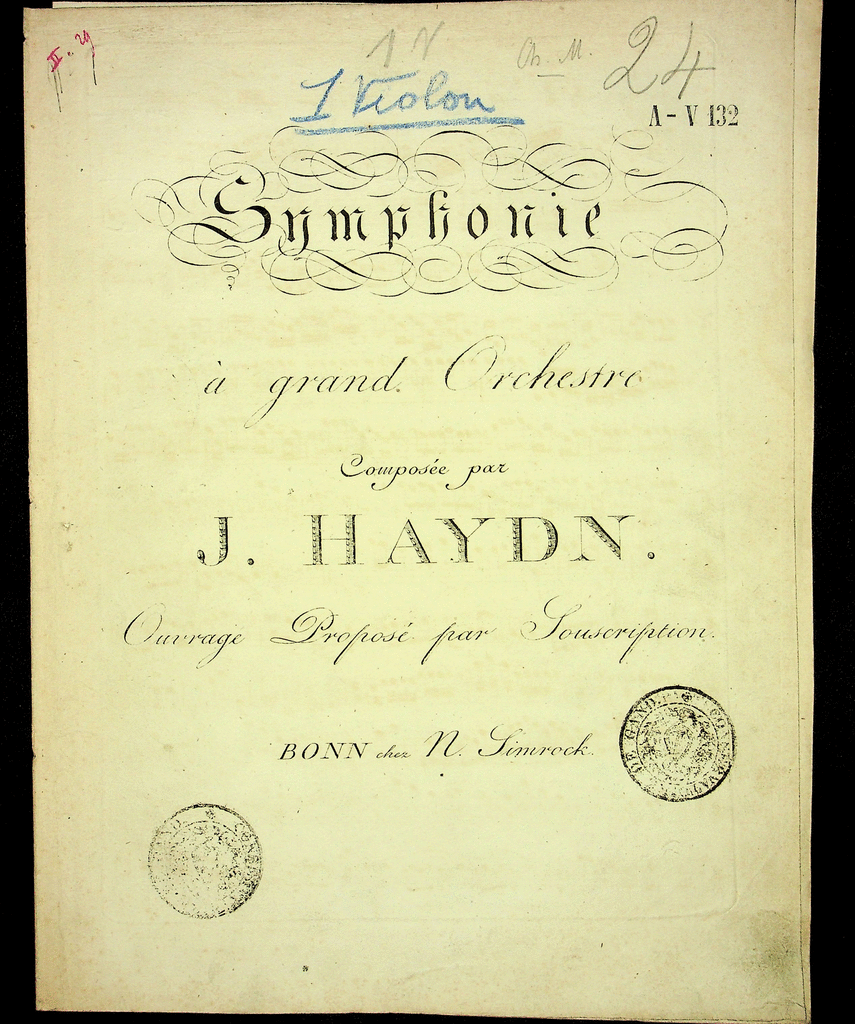 II. 29
1 V
Ch. M.
24
1 Violon
A - V 132
Symphonie
à grand Orchestre
Composée par
J. HAYDN.
Ouvrage Proposé par Souscription.
BONN chez N. Simrock.
DE GAND. CONSERVAT
CONSERV